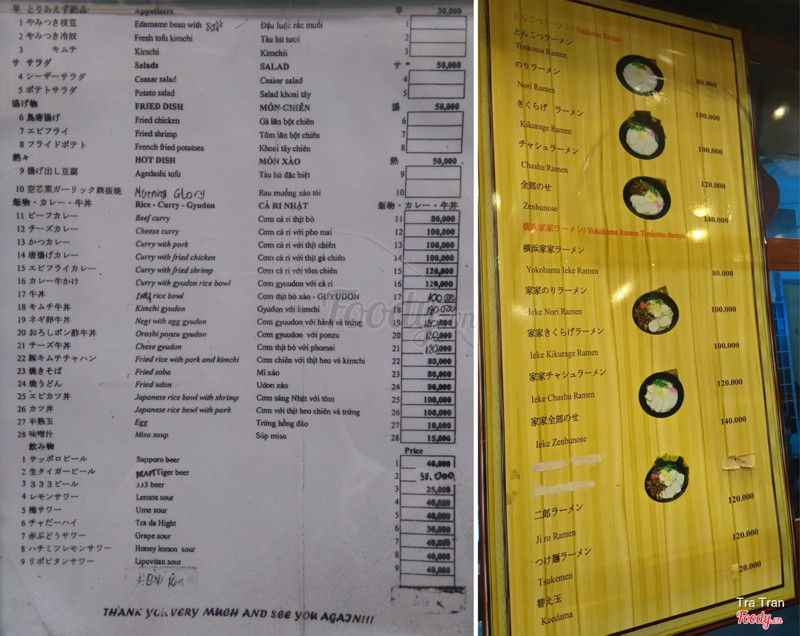 早 とりあえず逸品 Appetizers 早 30,000
1 やみつき枝豆 Edamame bean with Đậu luộc rắc muối 1
2 やみつき冷奴 Fresh tofu kimchi Tàu hú tươi 2
3 キムチ Kimchi Kimchii 3
サ サラダ Salads SALAD サ 50,000
4 シーザーサラダ Ceasar salad Ceasar salad 4
5 ポテトサラダ Potato salad Salad khoai tây 5
揚げ物 FRIED DISH MÓN CHIÊN 揚 50,000
6 鳥唐揚げ Fried chicken Gà lăn bột chiên 6
7 エビフライ Fried shrimp Tôm lăn bột chiên 7
8 フライドポテト French fried potatoes Khoai tây chiên 8
熱々 HOT DISH MÓN XÀO 熱 50,000
9 揚げ出し豆腐 Agedashi tofu Tàu hú đặc biệt 9
10 空芯菜ガーリック鉄板焼 Morning Glory Rau muống xào tỏi 10
飯物・カレー・牛丼 Rice - Curry - Gyudon CÀ RI NHẬT 飯物・カレー・牛丼
11 ビーフカレー Beef curry Cơm cà ri thịt bò 11 80,000
12 チーズカレー Cheese curry Cơm cà ri với pho mai 12 100,000
13 かつカレー Curry with pork Cơm cà ri với thịt chiên 13 100,000
14 唐揚げカレー Curry with fried chicken Cơm cà ri với thịt gà chiên 14 100,000
15 エビフライカレー Curry with fried shrimp Cơm cà ri với tôm chiên 15 120,000
16 カレー牛かけ Curry with gyudon rice bowl Cơm gyuudon với cà ri 16 120,000
17 牛丼 rice bowl Cơm thịt bò xào - GUYUDON 17 100.000
18 キムチ牛丼 Kimchi gyudon Gyudon với kimchi 18
19 ネギ卵牛丼 Negi with egg gyudon Cơm gyuudon với hành và trứng 19
20 おろしポン酢牛丼 Oroshi ponzu gyudon Cơm gyuudon với ponzu 20
21 チーズ牛丼 Chese gyudon Cơm thịt bò với phomai 21
22 豚キムチチャハン Fried rice with pork and kimchi Cơm chiên với thịt heo và kimchi 22 80,000
23 焼きそば Fried soba Mì xào 23 80,000
24 焼うどん Fried udon Udon xào 24 80,000
25 エビカツ丼 Japanese rice bowl with shrimp Cơm sáng Nhật với tôm 25 100,000
26 カツ丼 Japanese rice bowl with pork Cơm với thịt heo chiên và trứng 26 100,000
27 半熟玉 Egg Trứng hồng đào 27 10,000
28 味噌汁 Miso soup Súp miso 28 15,000
飲み物 Price
1 サッポロビール Sapporo beer 1 40,000
2 生タイガービール DRAFT Tiger beer 2 38.000
3 3 3 3ビール 333 beer 3 25,000
4 レモンサワー Lemon sour 4 40,000
5 梅サワー Ume sour 5 40,000
6 チャだーハイ Tra da Hight 6 30,000
7 赤ぶどうサワー Grape sour 7 40,000
8 ハチミツレモンサワー Honey lemon sour 8 40,000
9 リポビタンサワー Lipovitan sour 9 40,000
THANK YOU VERY MUCH AND SEE YOU AGAIN!!!
とんこつラーメン/ Tonkotsu Ramen
とんこつラーメン
Tonkotsu Ramen 80.000
のりラーメン
Nori Ramen 100.000
きくらげ ラーメン
Kikurage Ramen 100.000
チャシュラーメン
Chashu Ramen 120.000
全部のせ
Zenbunose 140.000
横浜家家ラーメン/ Yokohama Ramen Tonkotsu shouyu
横浜家家ラーメン
Yokohama Ieke Ramen 80.000
家家のりラーメン
Ieke Nori Ramen 100.000
家家きくらげラーメン
Ieke Kikurage Ramen 100.000
家家チャシュラーメン
Ieke Chashu Ramen 120.000
家家全部のせ
Ieke Zenbunose 140.000
二郎ラーメン
Ji ro Ramen 120.000
つけ麺ラーメン
Tsukemen 120.000
替え玉
Kaedama 20.000
Foody.vn
Tra Tran
Foody.vn